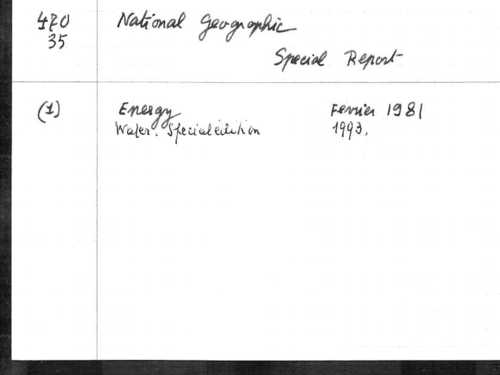 470 National Geographic
35
Special Report
(1) Energy Fevrier 1981
Water. Special edition 1993.